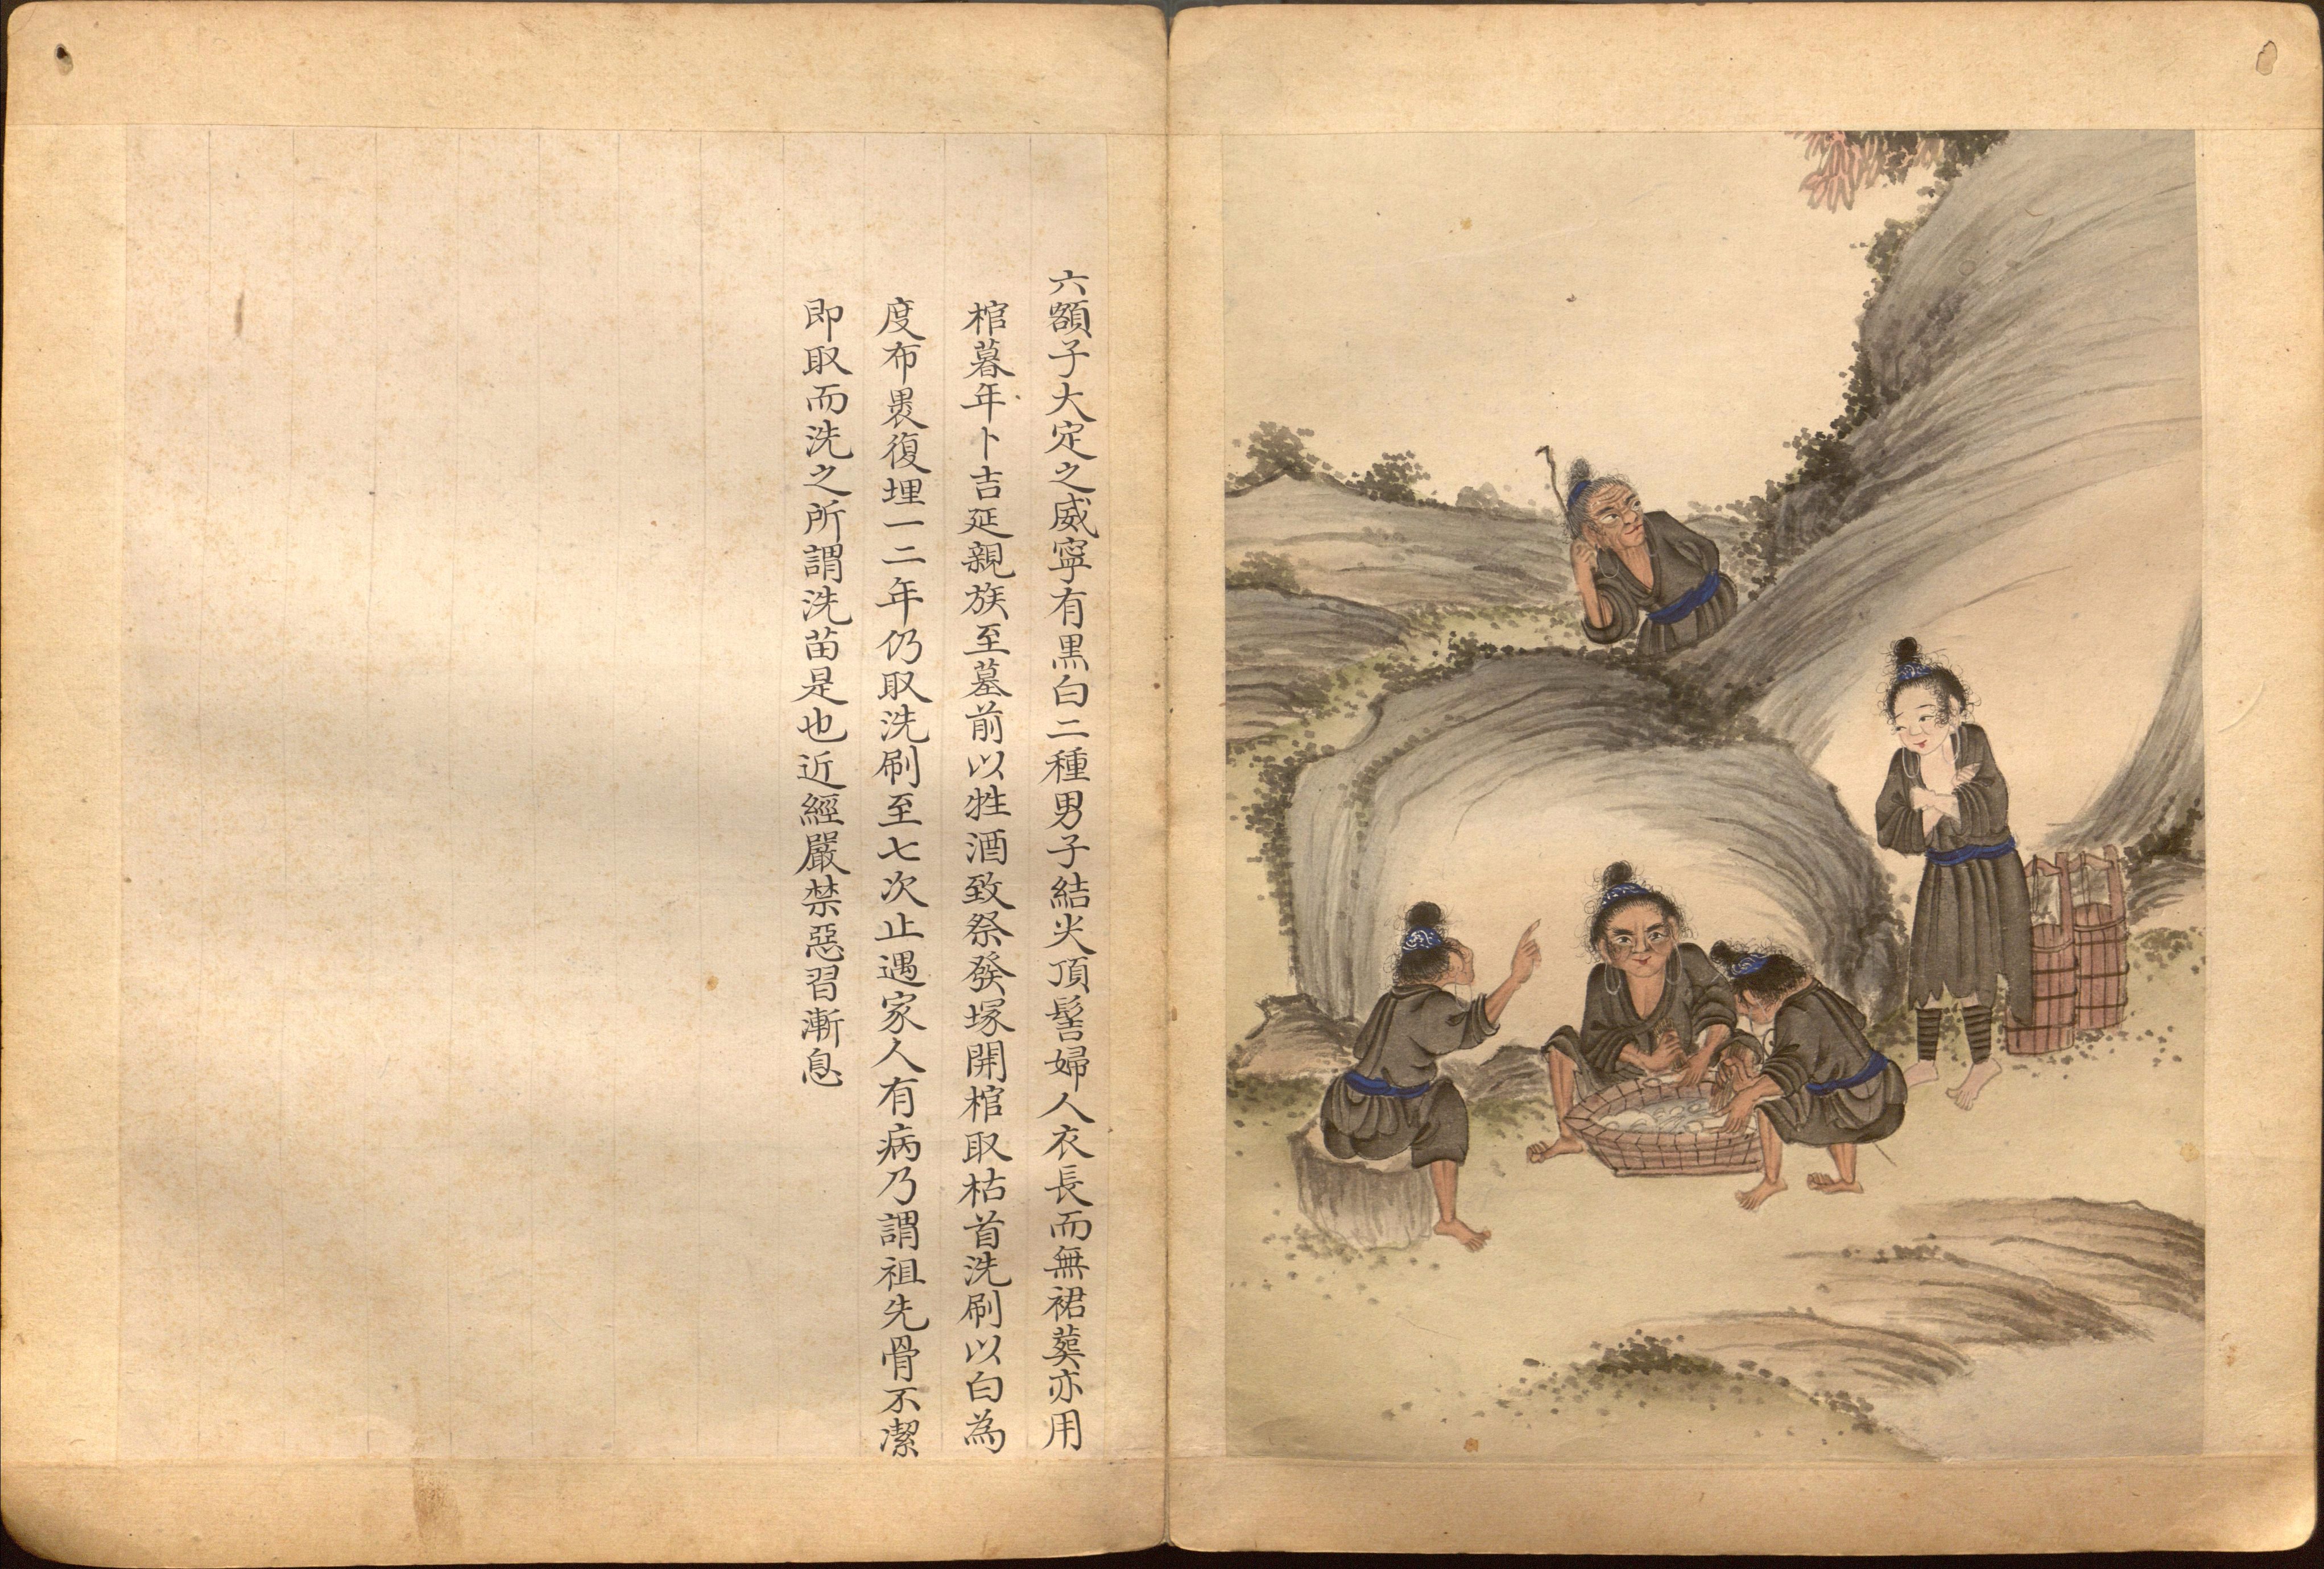 六額子大定之威寧有黒白二種男子結尖頂髻婦人衣長而無裙葬亦用
棺暮年卜吉延親族至墓前以牲酒致祭發塚開棺取枯首洗刷以白為
度布裹復埋一二年仍取洗刷至七次止遇家人有病乃謂祖先骨不潔
即取而洗之所謂洗苗是也近經嚴禁惡習漸息